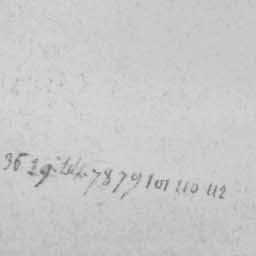 36 78 79 101 110 112